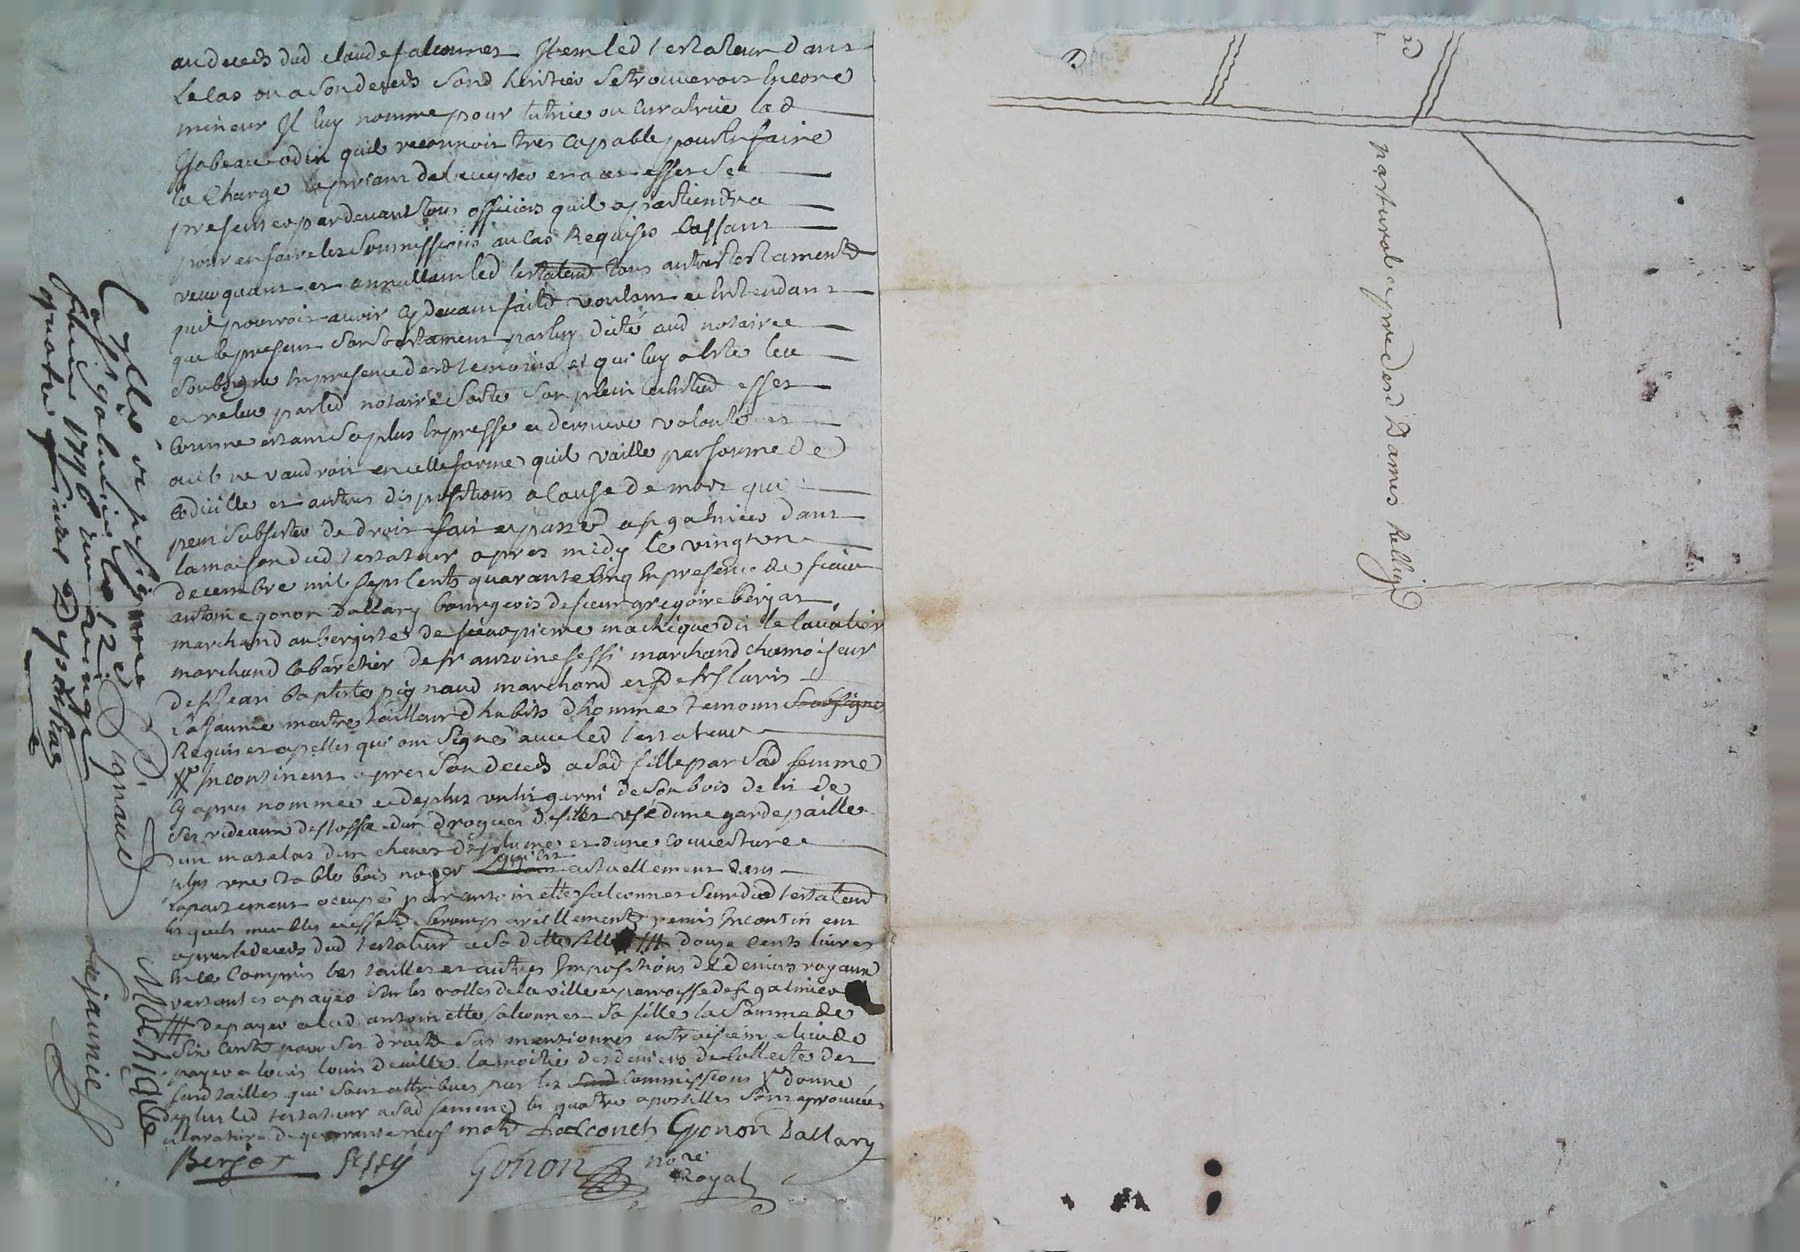 au deceds dud claude falconnet Item led testateur dans
le cas ou a son deceds sond heritier se trouveroit encore
mineur Il luy nomme pour tutrice ou curatrice lad
Isabeau odin quil reconnoit tres capable pour en faire
la charge la priant de laccepter et a cet effet se
presenter pardevant tous officiers quil apartiendra
pour en faire les soumissions au cas Requises Cassant
revoquant et annullant led testateur tous autres testaments
quil pourroit avoir cy devant faits voulant et entendant
que le present son testament par luy dicté aud notaire
soubsigné en presence desd temoins et qui luy a esté leu
et releu par led notaire sorte son plein et entier effet
comme estant sa plus expresse et derniere volonté et
ou il ne vaudroit en cette forme quil vaille par forme de
codicille et autres dispositions a cause de mort qui
peut subsister de droit fait et passé a st galmier dans
la maison dud testateur apres midy le vingt un
decembre mil sept cents quarante cinq en presence de sieur
antoine gonon Dallary bourgeois de sieur gregoire berjat
marchand aubergiste de sieur pierre machique dit le cavalier
marchand cabaretier de sr antoine sessi marchand chamoiseur
de sr Jean baptiste pignaud marchand et de
Lajaunie maitre tailleur dhabits dhomme temoins soubsignes
Requis et apellés qui ont signé avec led testateur
Incontinent apres son deceds a sad fille par sad femme
cy apres nommée et de plus un lit garni de son bois de lit de
ses rideaux destoffe dun droguet de fillet usé dune garde paille
dun matelas dun chevet de plume et dune couverture
plus une table bois noyer qui est actuellement dans
lapartement occupé par antoinette falconnet soeur dud testateur
les quels meubles et effets seront pareillement remis Incontinent
apres le deceds dud testateur a sa ditte fille douze cents livres
en ce compris les tailles et autres Impositions de deniers royaux
restantes a payer sur les rolles de la ville et parroisse de st galmier
de payer a lad antoinette falconnet sa fille la somme de
six cents pour ses droits sus mentionnés en troisieme lieu de
payer a louis louis deville la moitié des deniers de collecte des
susd tailles qui sont attribués par les commissions donne
de plus led testateur a sad femme les quatre apostilles sont aprouvées
et la rature de quarante neuf mots falconet Gonon Dallary
Berjat Sessy Gonon nore
Royal
Controllé et
a st galmier le 12e
1746
quatre livres
Pignaud
Machique
Lajaunie
pastural apred desd Dames Relligs